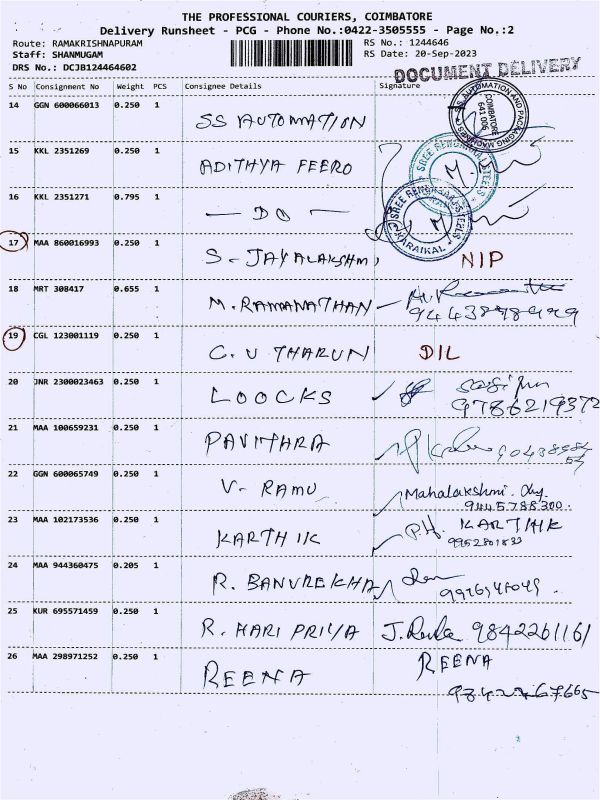 THE PROFESSIONAL COURIERS, COIMBATORE
Delivery Runsheet - PCG - Phone No.:0422-3505555 - Page No.:2
Route: RAMAKRISHNAPURAM
Staff: SHANMUGAM
DRS No.: DCJB124464602
RS No.: 1244646
RS Date: 20-Sep-2023
DOCUMENT DELIVERY
S No Consignment No Weight PCS Consignee Details Signature
14 GGN 600066013 0.250 1 SS AUTOMATION
S.S. AUTOMATION AND PACKAGING MACHINES
COIMBATORE
641 006
15 KKL 2351269 0.250 1 ADITHYA FEERO
16 KKL 2351271 0.795 1 — DO —
KARAIKAL
17 MAA 860016993 0.250 1 S. JAYALAKSHMI NIP
18 MRT 308417 0.655 1 M. RAMANATHAN
19 CGL 123001119 0.250 1 C. U THARUN DIL
20 JNR 2300023463 0.250 1 LOOCKS
9786219372
21 MAA 100659231 0.250 1 PAVITHRA
22 GGN 600065749 0.250 1 V. RAMU Mahalakshmi.
9445788300.
23 MAA 102173536 0.250 1 KARTHIK P.H. KARTHIK
24 MAA 944360475 0.205 1 R. BANUREKHA
25 KUR 695571459 0.250 1 R. HARI PRIYA 9842261161
26 MAA 298971252 0.250 1 REENA REENA